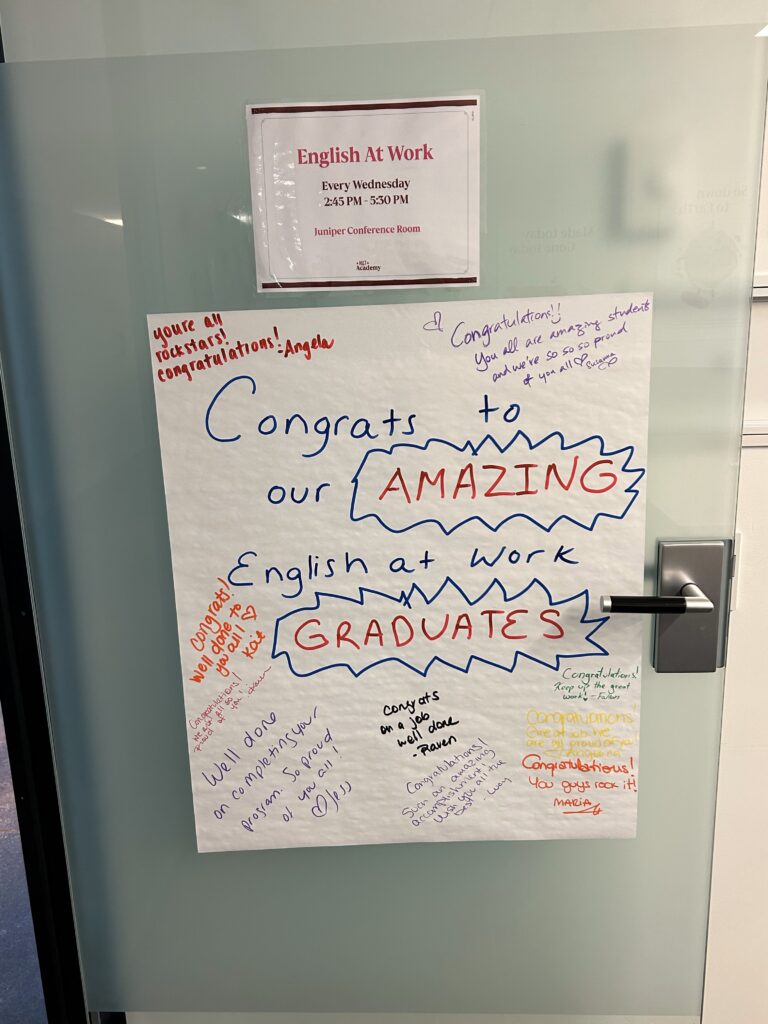 English At Work
Every Wednesday
2:45 PM - 5:30 PM
Juniper Conference Room
Academy
youre all
rockstars!
congratulations! -Angela
Congratulations!!
You all are amazing students
and we're so so so proud
of you all
Congrats to
our AMAZING
English at work
GRADUATES
Congrats!
Well done to
you all!
Kat
Congratulations!
We are all so
proud of you!
Well done
on completing your
program. So proud
of you all!
Jess
congrats
on a job
well done
-Raven
Congratulations!
Such an amazing
accomplishment.
Wish you all the
best -
Congratulations!
Keep up the great
work! - Fallon
Congratulations!
job We
are all proud of
Congratulations!
You guys rock it!
MARIA
Made today
Gone today